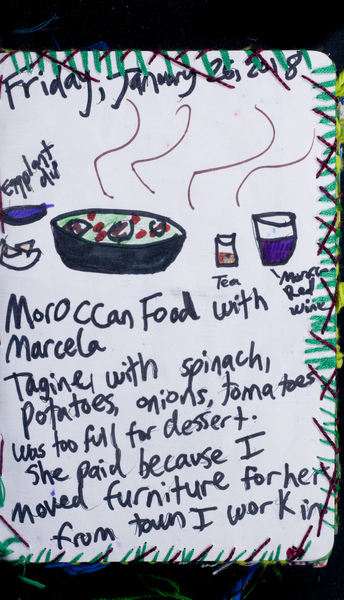 Friday, January 26, 2018
Eggplant dip
Tea
Moroccan Red wine
Moroccan Food with
Marcela
Tagine, with spinach,
potatoes, onions, tomatoes
was too full for dessert.
She paid because I
moved furniture for her
from town I work in